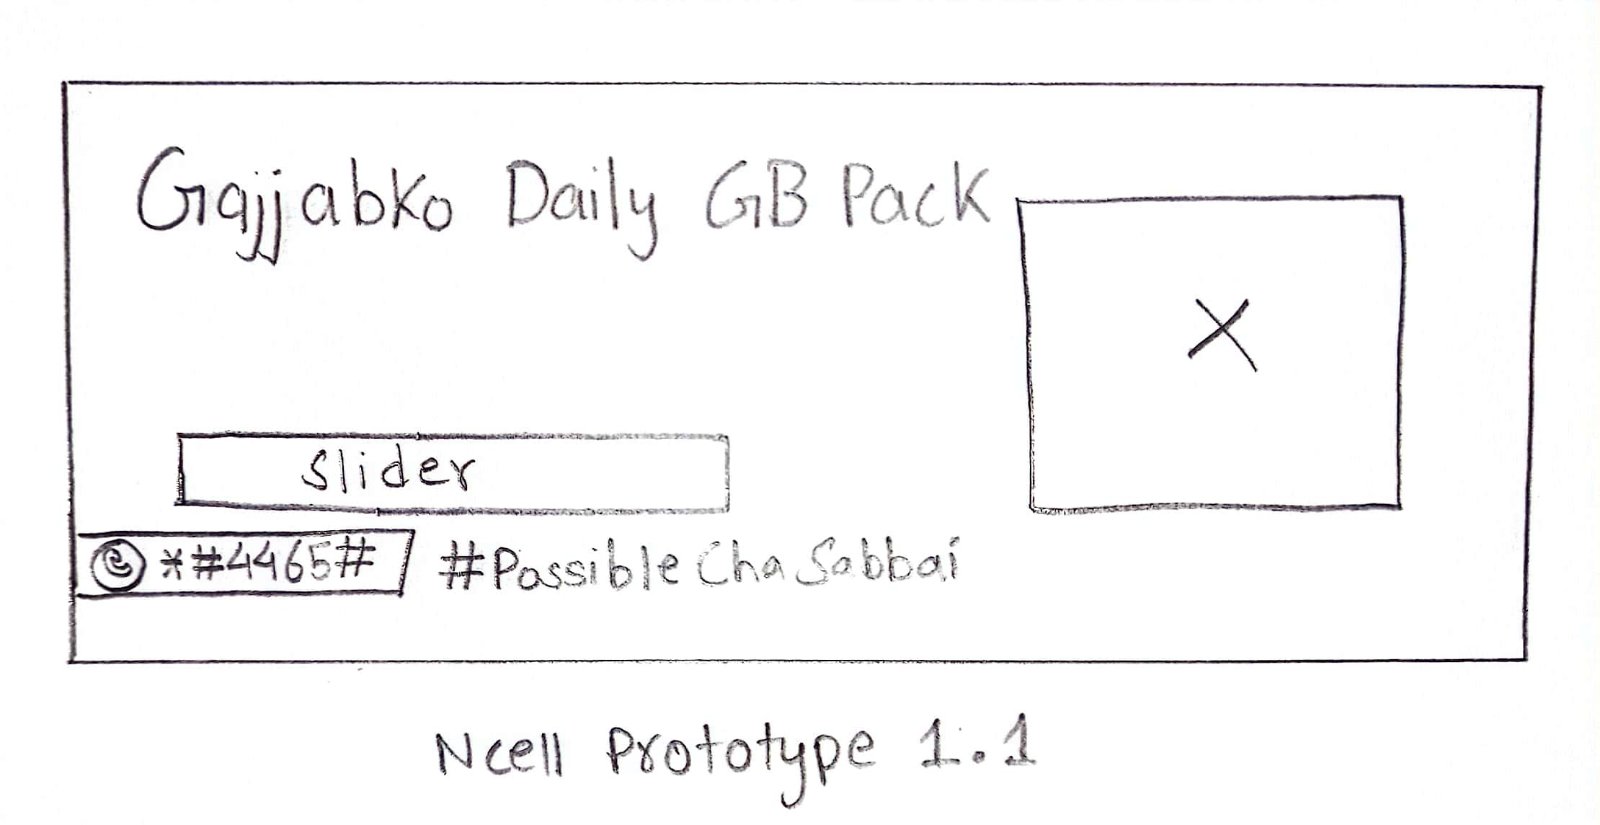 Gajjabko Daily GB Pack
X
Slider
e *#4465# #PossibleChaSabbai
Ncell Prototype 1.1